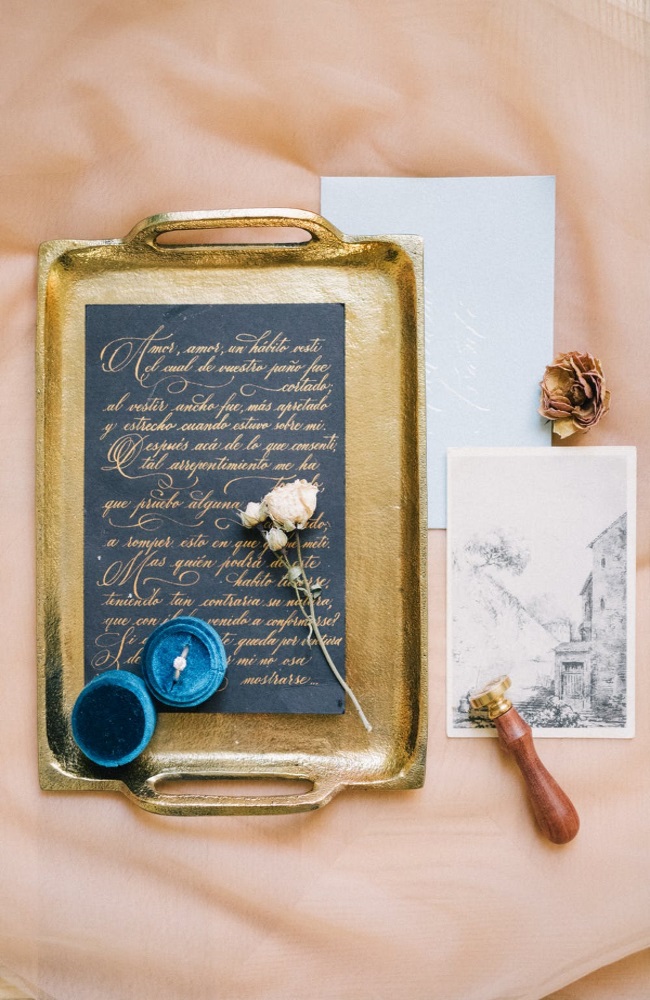 Amor, amor, un hábito vestí
el cual de vuestro paño fue
cortado;
al vestir ancho fue, más apretado
y estrecho cuando estuvo sobre mí.
Después acá de lo que consentí,
tal arrepentimiento me ha
que pruebo alguna
a romper esto en que
Mas quién podrá de este
hábito librarse,
teniendo tan contraria su natura
que con él ha venido a conformarse?
Si queda por ventura
mí no osa
mostrarse...